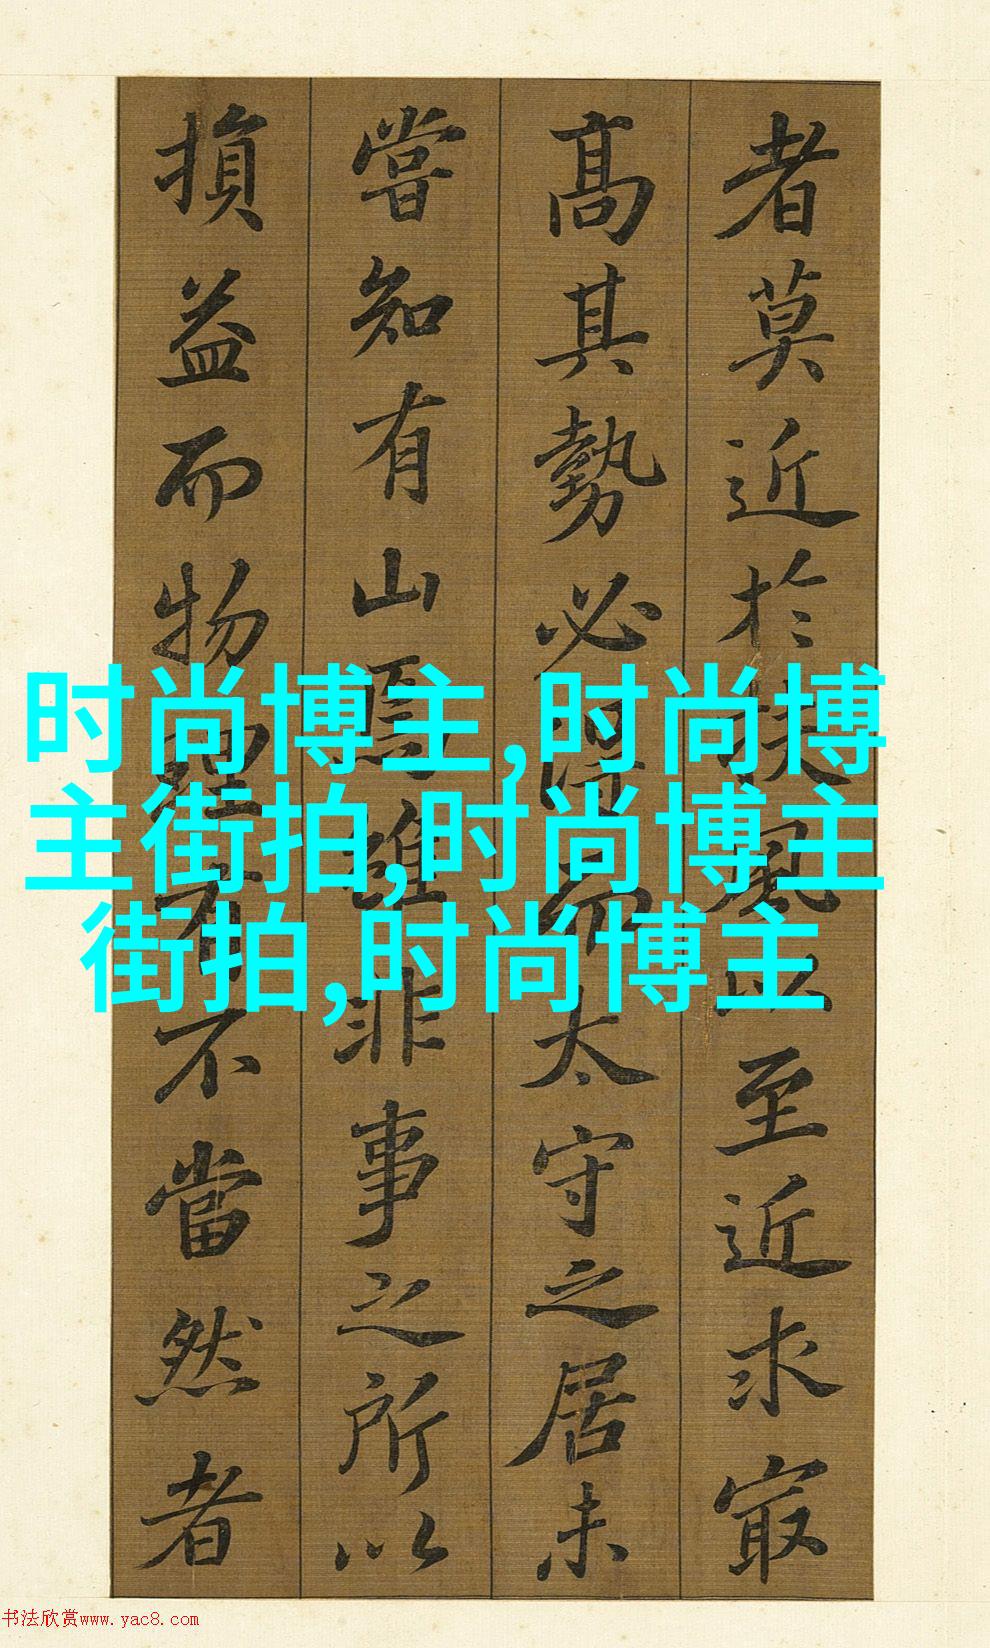 者莫近於扶風以至近求最
高其勢必得而太守之居未
嘗知有山焉雖非事之所以
損益而物理有不當然者
时尚博主,时尚博
主街拍,时尚博主
街拍,时尚博主
书法欣赏www.yac8.com